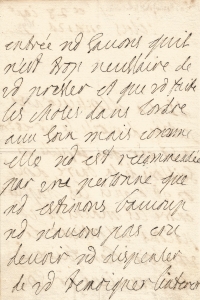 entrée nd savons quil
n'est bon neccessaire de
vd presser et que vd
les choses dans lordre
aux soin mais comme
elle nd est recommandée
par une personne que
nd estimons baucoup
nd n'avons pas cru
devoir nd dispenser
de vd temoigner linterest